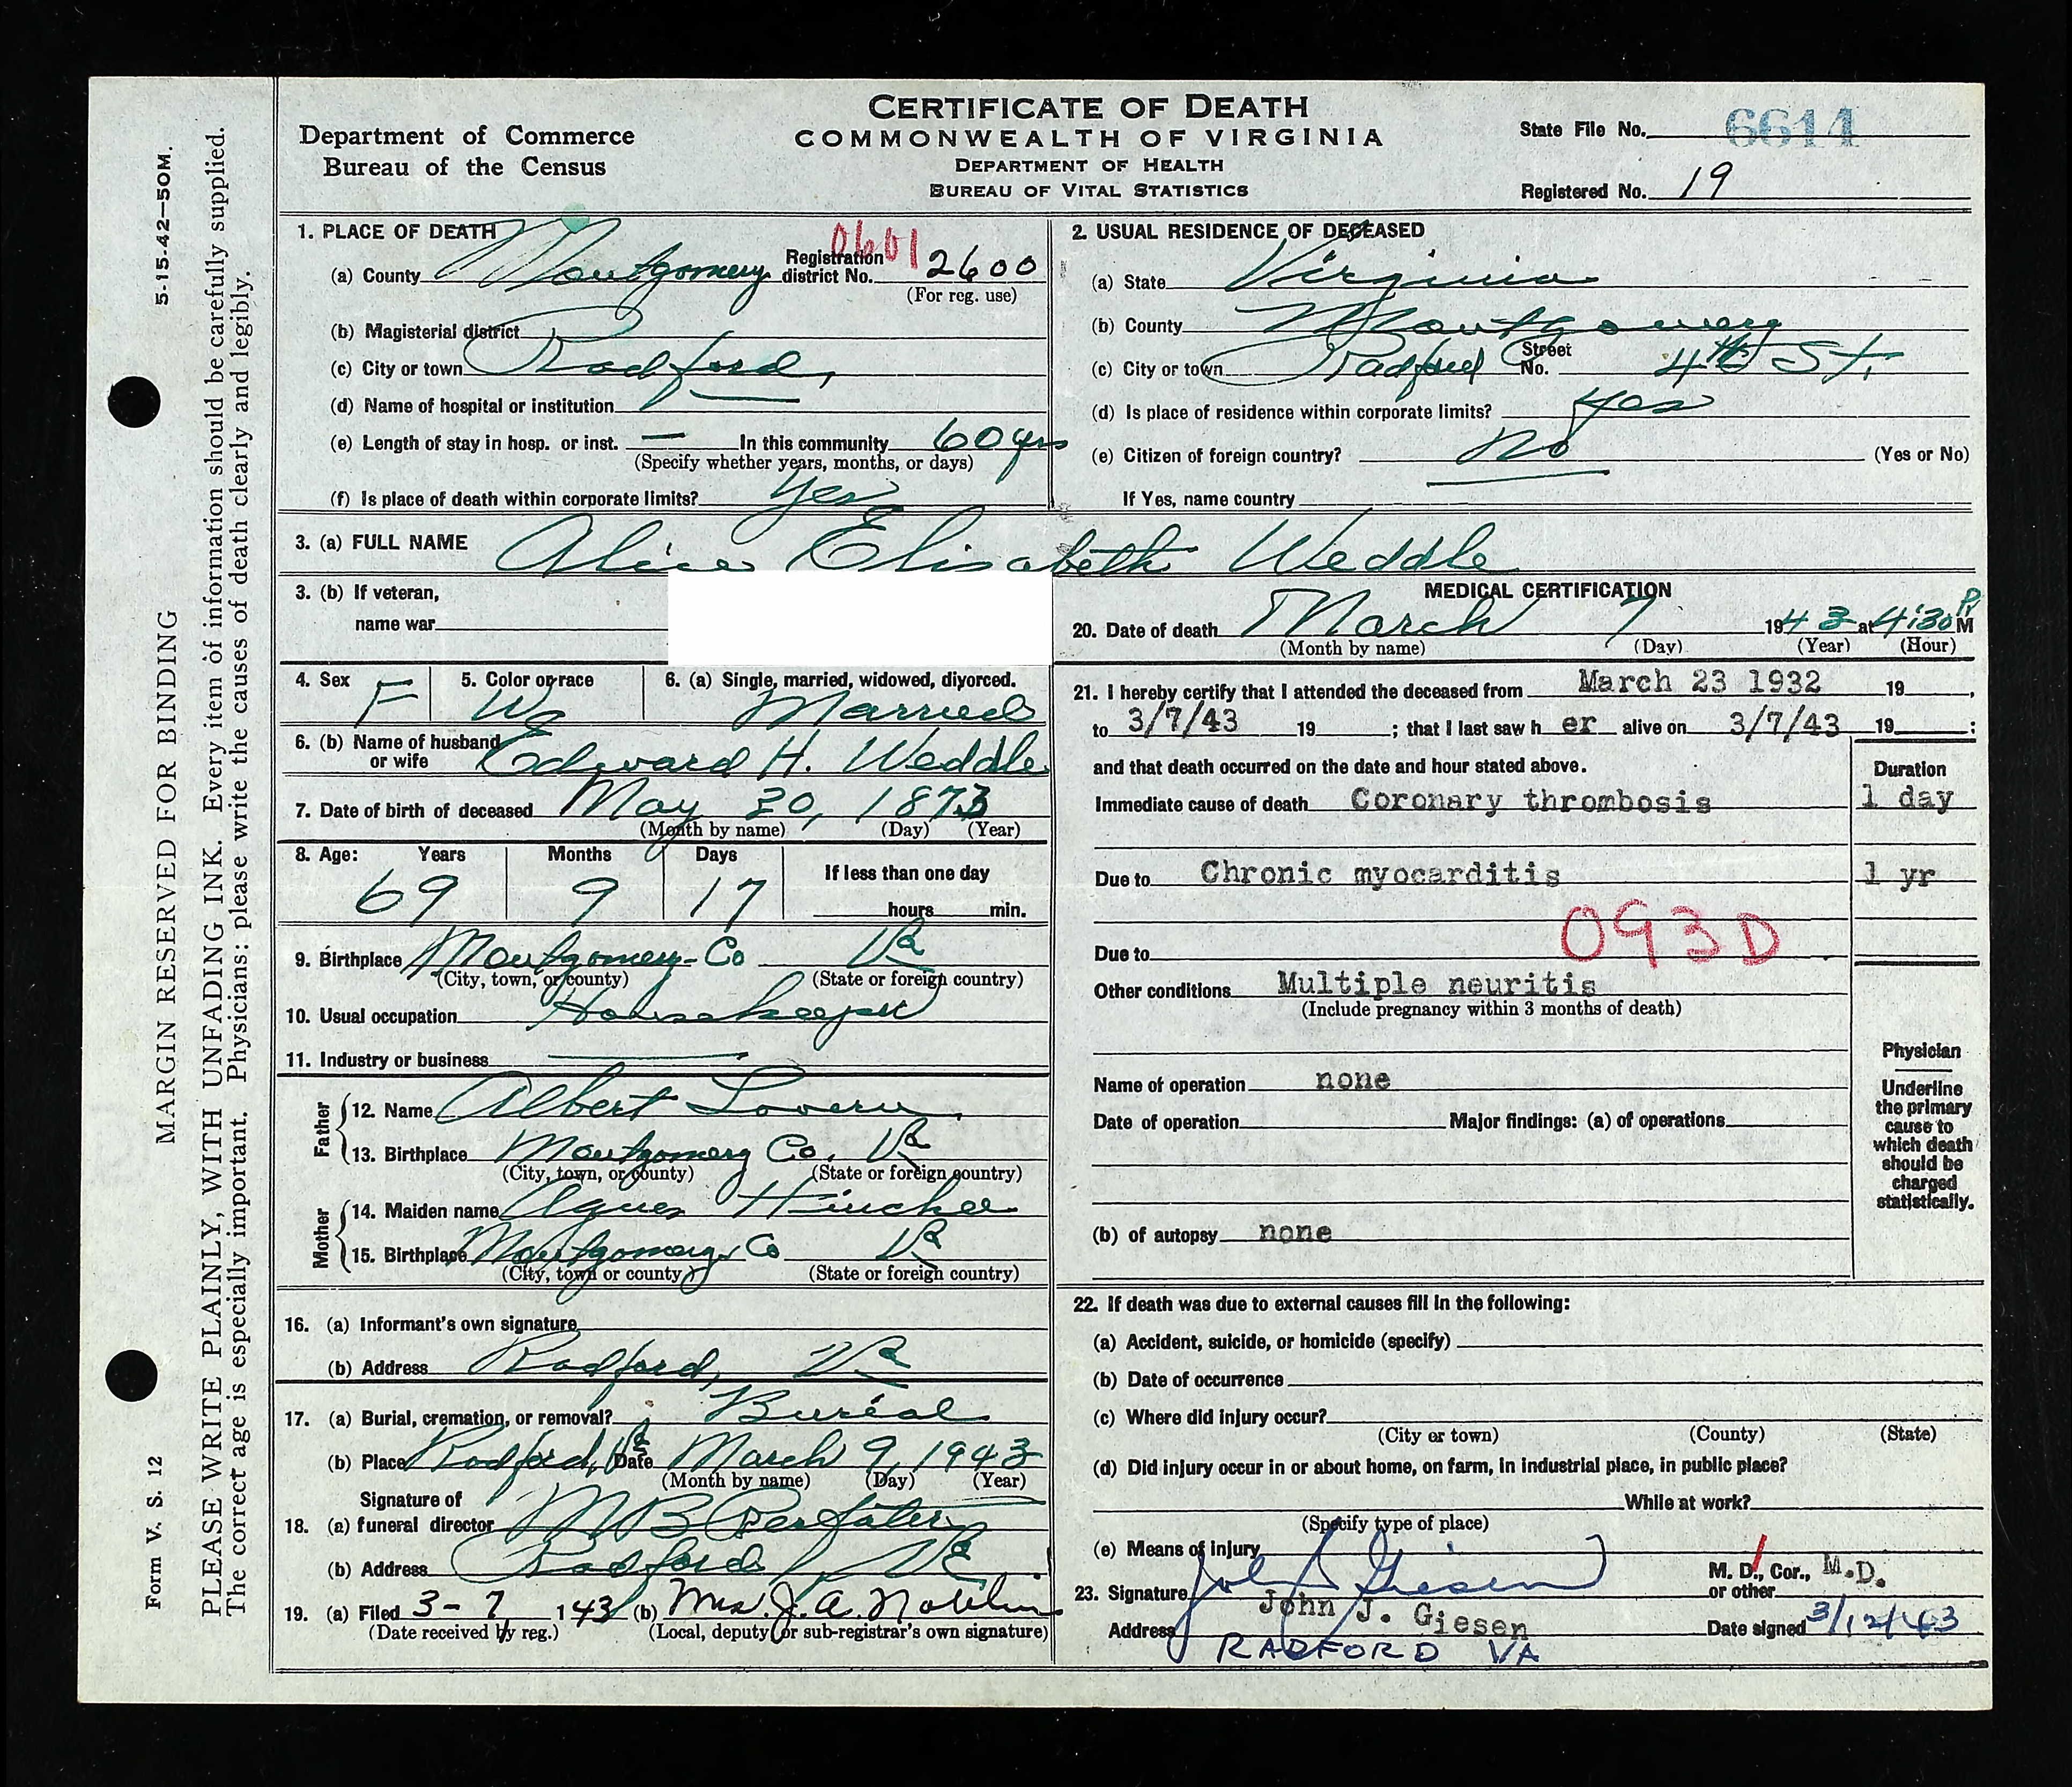 CERTIFICATE OF DEATH
COMMONWEALTH OF VIRGINIA
DEPARTMENT OF HEALTH
BUREAU OF VITAL STATISTICS
Department of Commerce
Bureau of the Census
State File No. 6614
Registered No. 19
5-15-42—50M.
MARGIN RESERVED FOR BINDING
PLEASE WRITE PLAINLY, WITH UNFADING INK. Every item of information should be carefully supplied.
The correct age is especially important. Physicians: please write the causes of death clearly and legibly.
Form V. S. 12
1. PLACE OF DEATH
0601
(a) County Montgomery Registration district No. 2600
(For reg. use)
(b) Magisterial district
(c) City or town Radford,
(d) Name of hospital or institution —
(e) Length of stay in hosp. or inst. — In this community 60 yrs
(Specify whether years, months, or days)
(f) Is place of death within corporate limits? Yes
2. USUAL RESIDENCE OF DECEASED
(a) State Virginia
(b) County Montgomery
(c) City or town Radford Street No. 4th St.
(d) Is place of residence within corporate limits? yes
(e) Citizen of foreign country? No (Yes or No)
If Yes, name country
3. (a) FULL NAME Alice Elisabeth Weddle
3. (b) If veteran,
name war
4. Sex F 5. Color or race W 6. (a) Single, married, widowed, divorced. Married
6. (b) Name of husband or wife Edward H. Weddle
7. Date of birth of deceased May 20, 1873
(Month by name) (Day) (Year)
8. Age: Years Months Days If less than one day
69 9 17 hours min.
9. Birthplace Montgomery Co Va
(City, town, or county) (State or foreign country)
10. Usual occupation Housekeeper
11. Industry or business —
Father
12. Name Albert Lovern
13. Birthplace Montgomery Co. Va
(City, town, or county) (State or foreign country)
Mother
14. Maiden name Agnes Hinchee
15. Birthplace Montgomery Co Va
(City, town or county) (State or foreign country)
16. (a) Informant's own signature
(b) Address Radford, Va
17. (a) Burial, cremation, or removal? Burial
(b) Place Radford, Va Date March 9, 1943
(Month by name) (Day) (Year)
Signature of
18. (a) funeral director M B
(b) Address Radford, Va
19. (a) Filed 3-7 1943 (b) Mrs. J. A. Noblin
(Date received by reg.) (Local, deputy or sub-registrar's own signature)
MEDICAL CERTIFICATION
20. Date of death March 7 1943 at 4:30 P M
(Month by name) (Day) (Year) (Hour)
21. I hereby certify that I attended the deceased from March 23 1932 19 ,
to 3/7/43 19 ; that I last saw h er alive on 3/7/43 19 ;
and that death occurred on the date and hour stated above.
Duration
Immediate cause of death Coronary thrombosis 1 day
Due to Chronic myocarditis 1 yr
093D
Due to
Other conditions Multiple neuritis
(Include pregnancy within 3 months of death)
Name of operation none
Date of operation Major findings: (a) of operations
(b) of autopsy none
Physician
Underline
the primary
cause to
which death
should be
charged
statistically.
22. If death was due to external causes fill in the following:
(a) Accident, suicide, or homicide (specify)
(b) Date of occurrence
(c) Where did injury occur?
(City or town) (County) (State)
(d) Did injury occur in or about home, on farm, in industrial place, in public place?
While at work?
(Specify type of place)
(e) Means of injury
23. Signature John J Giesen M. D., Cor., or other M.D.
John J. Giesen
Address RADFORD VA Date signed 3/12/43